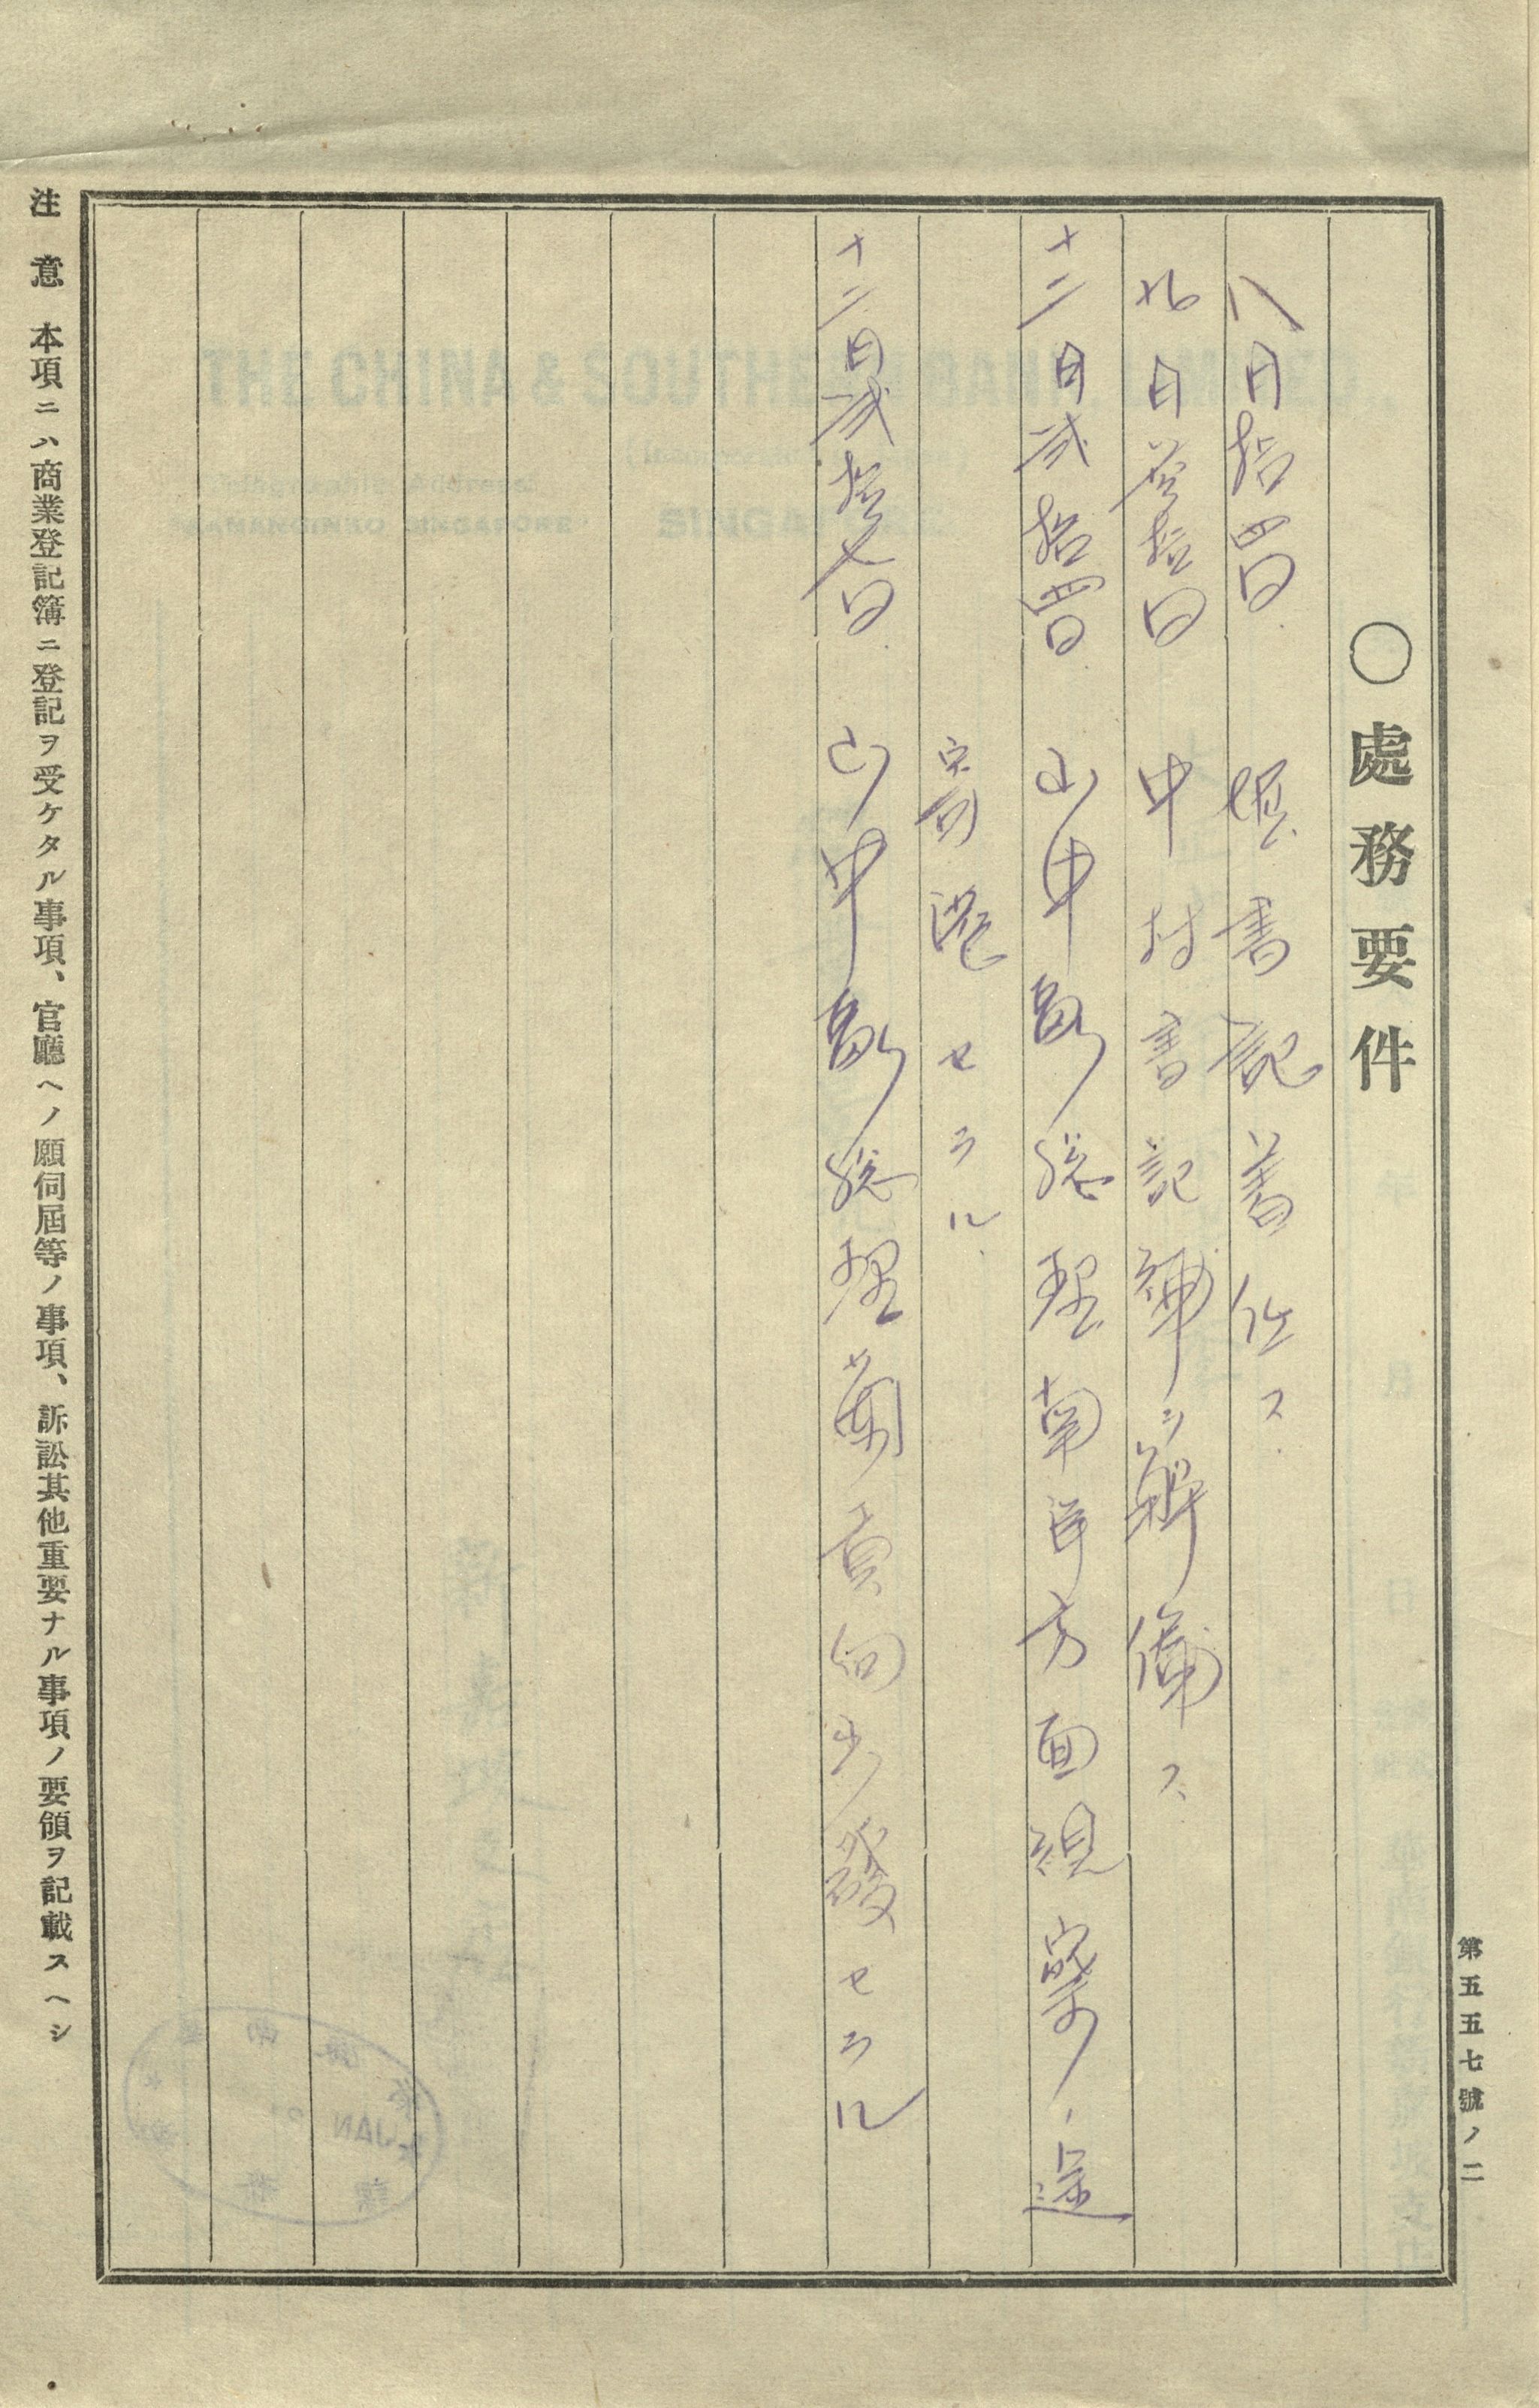 第五五七號ノ二
〇處務要件
八月拾四日 書記着任ス
九月拾日 中村書記 シ ス
十二月貳拾四日 山中 総理南洋方面視察ノ途
寄港セラル
十二月貳拾七日 山中 総理蘭貢向出發セラル
注意 本項ニハ商業登記簿ニ登記ヲ受ケタル事項、官廳ヘノ願伺屆等ノ事項、訴訟其他重要ナル事項ノ要領ヲ記載スヘシ
THE CHINA & SOUTHERN BANK
SINGAPORE
JAN